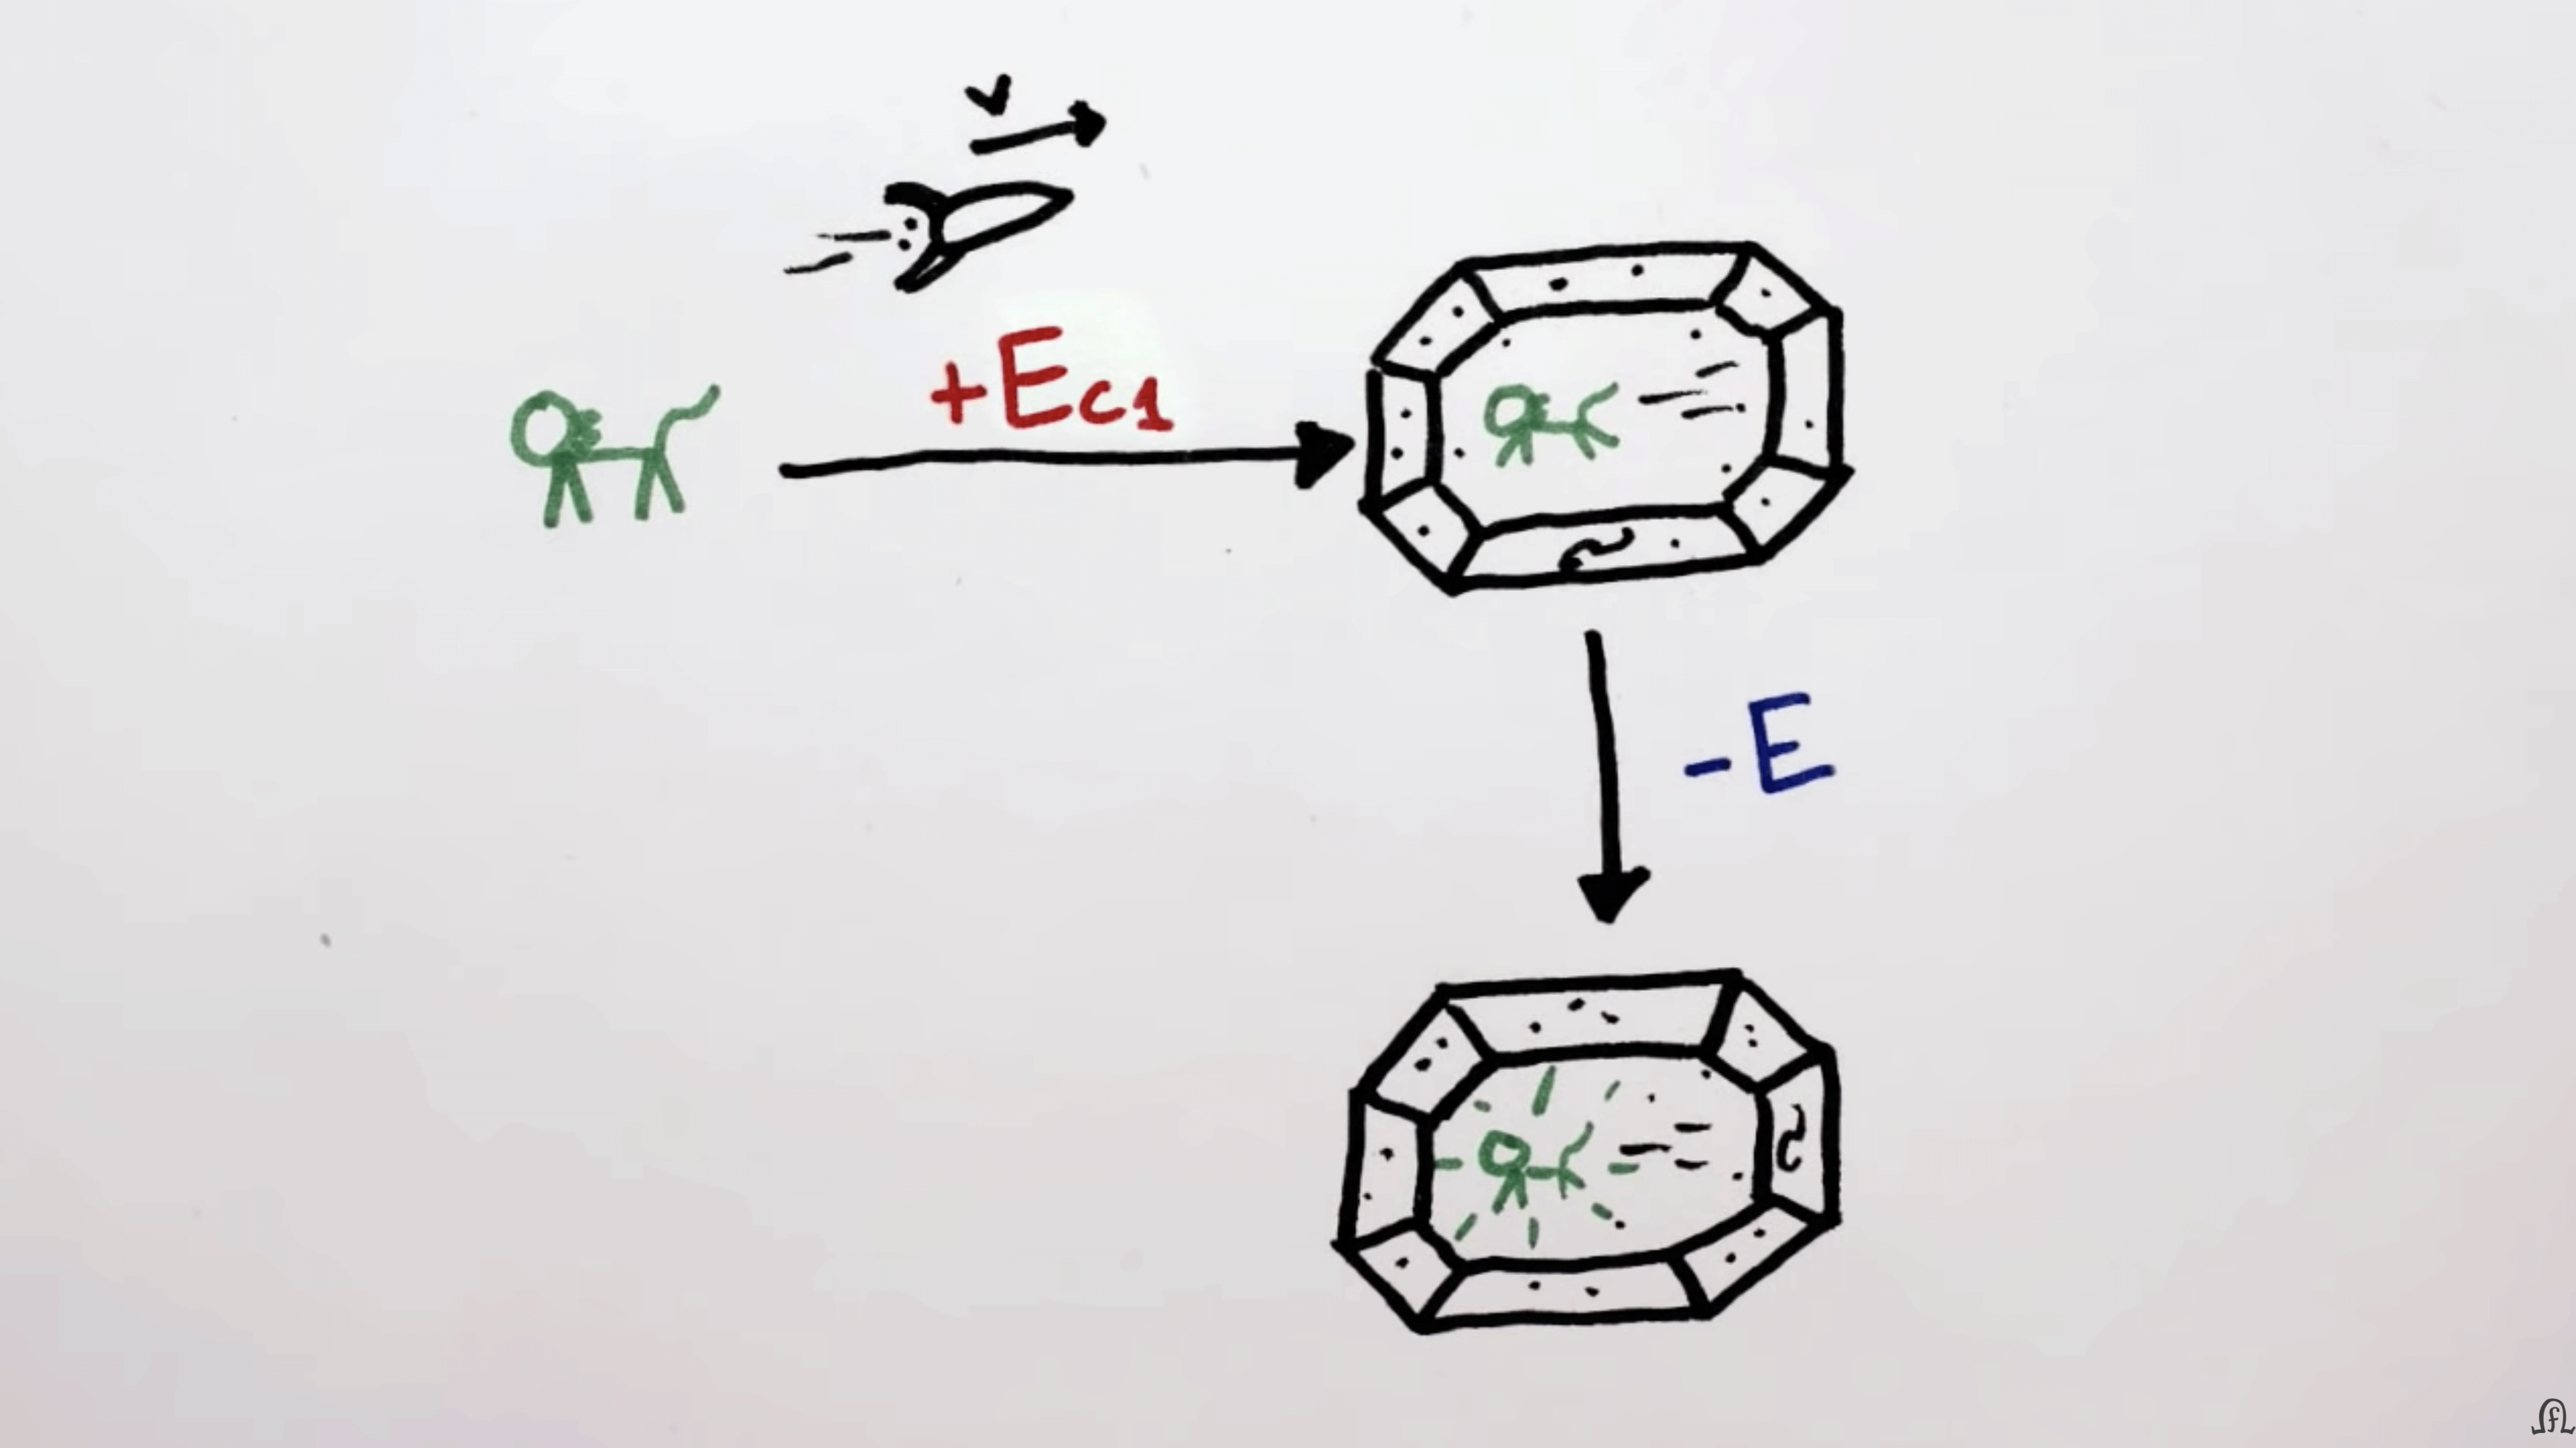 v
+Ec1
-E